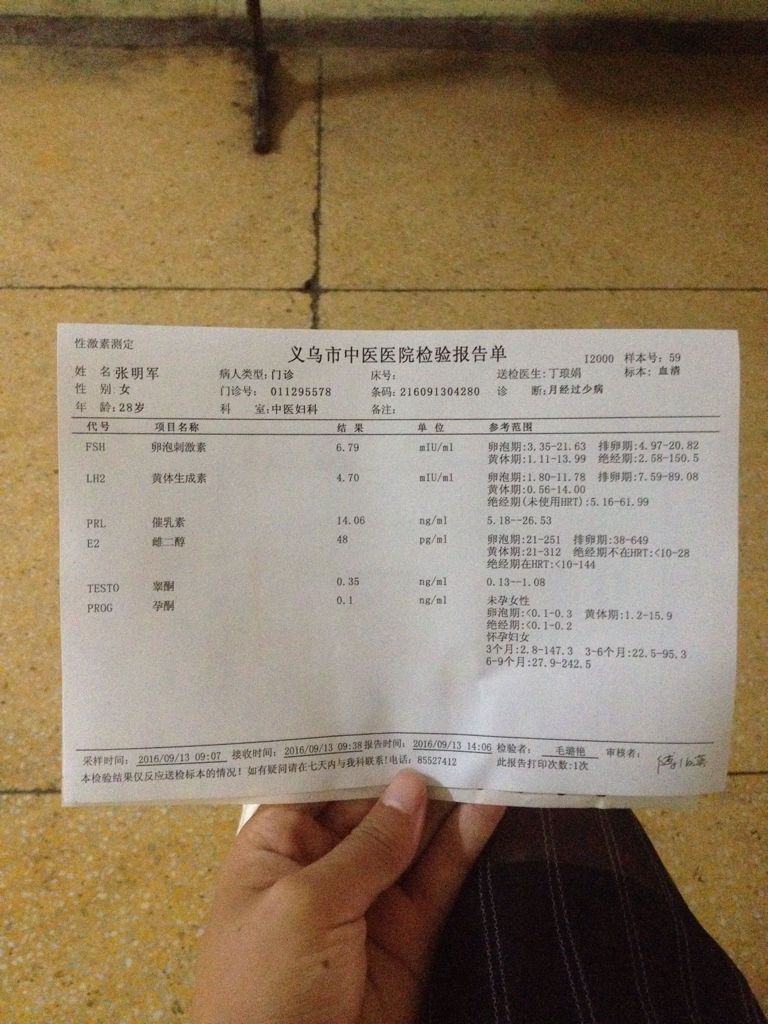 性激素测定
义乌市中医医院检验报告单
I2000 样本号: 59
姓 名 张明军 病人类型: 门诊 床号: 送检医生: 丁琅娟 标本: 血清
性 别: 女 门诊号: 011295578 条码: 216091304280 诊 断: 月经过少病
年 龄: 28岁 科 室: 中医妇科 备注:
代号 项目名称 结 果 单 位 参考范围
FSH 卵泡刺激素 6.79 mIU/ml 卵泡期:3.35-21.63 排卵期:4.97-20.82
黄体期:1.11-13.99 绝经期:2.58-150.5
LH2 黄体生成素 4.70 mIU/ml 卵泡期:1.80-11.78 排卵期:7.59-89.08
黄体期:0.56-14.00
绝经期(未使用HRT):5.16-61.99
PRL 催乳素 14.06 ng/ml 5.18--26.53
E2 雌二醇 48 pg/ml 卵泡期:21-251 排卵期:38-649
黄体期:21-312 绝经期不在HRT:<10-28
绝经期在HRT:<10-144
TESTO 睾酮 0.35 ng/ml 0.13--1.08
PROG 孕酮 0.1 ng/ml 未孕女性
卵泡期:<0.1-0.3 黄体期:1.2-15.9
绝经期:<0.1-0.2
怀孕妇女
3个月:2.8-147.3 3-6个月:22.5-95.3
6-9个月:27.9-242.5
采样时间: 2016/09/13 09:07 接收时间: 2016/09/13 09:38 报告时间: 2016/09/13 14:06 检验者: 毛璐艳 审核者:
本检验结果仅反应送检标本的情况! 如有疑问请在七天内与我科联系!电话: 85527412 此报告打印次数:1次